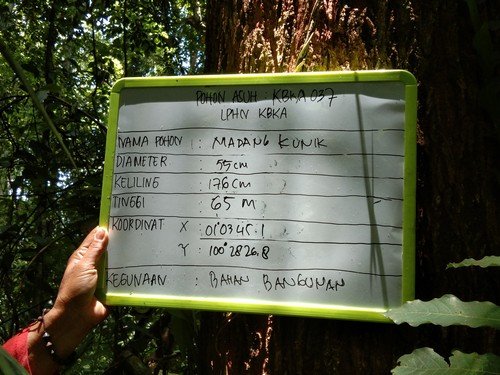 POHON ASUH : KBKA 037
LPHN KBKA
NAMA POHON : MADANG KUNIK
DIAMETER : 55 cm
KELILING : 176 cm
TINGGI : 65 M
KOORDINAT X : 01°03'45.1
Y : 100°28'26.8
KEGUNAAN : BAHAN BANGUNAN